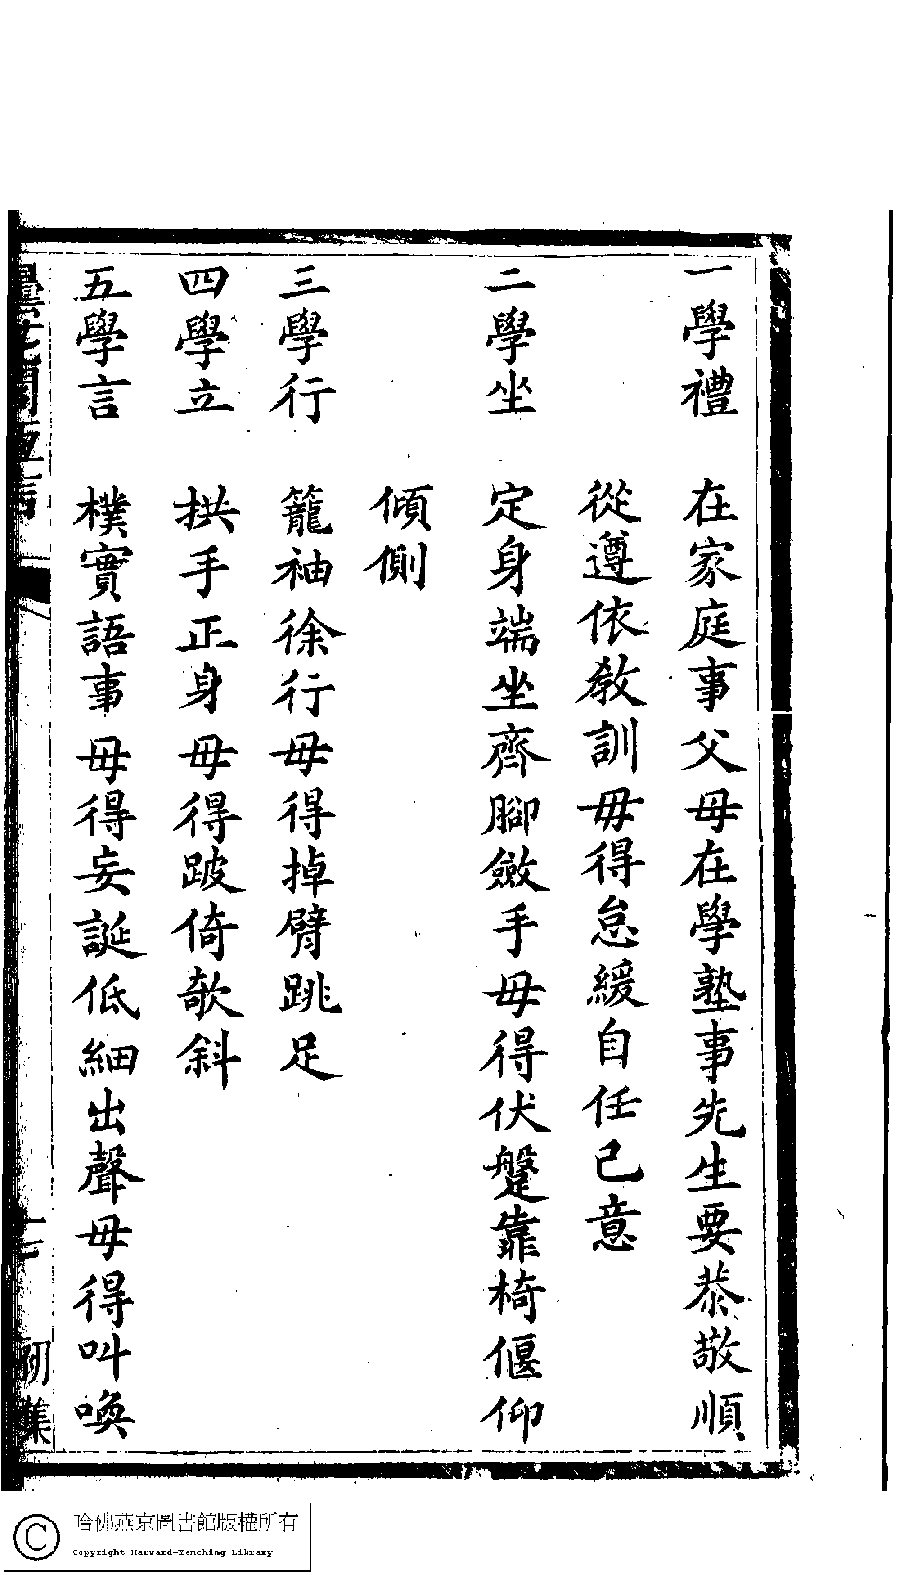 一學禮　在家庭事父母在學塾事先生要恭敬順
從遵依教訓毋得怠緩自任己意
二學坐　定身端坐齊腳斂手毋得伏盤靠椅偃仰
傾側
三學行　籠袖徐行毋得掉臂跳足
四學立　拱手正身毋得跛倚欹斜
五學言　樸實語事毋得妄誕低細出聲毋得叫喚
初集
哈佛燕京圖書館版權所有
Copyright Harvard-Yenching Library